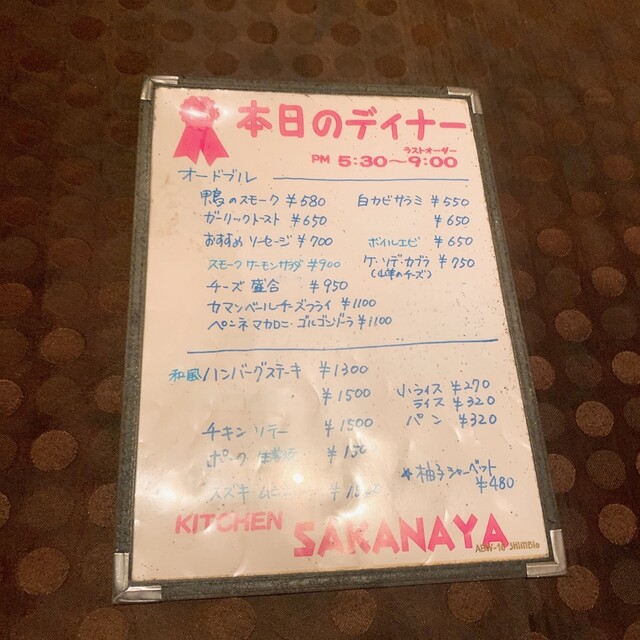 本日のディナー
ラストオーダー
PM 5:30〜9:00
オードブル
鴨のスモーク ¥580 白カビサラミ ¥550
ガーリックトースト ¥650 ¥650
おすすめソーセージ ¥700 ボイルエビ ¥650
スモークサーモンサラダ ¥900 ケソデカブラ ¥750
(山羊のチーズ)
チーズ盛合 ¥950
カマンベールチーズフライ ¥1100
ペンネマカロニ・ゴルゴンゾーラ ¥1100
和風ハンバーグステーキ ¥1300
¥1500
小ライス ¥270
ライス ¥320
パン ¥320
チキンソテー ¥1500
ポーク
スズキ
★柚子シャーベット
¥480
KITCHEN
SAKANAYA
ABW-10 SHIMBI